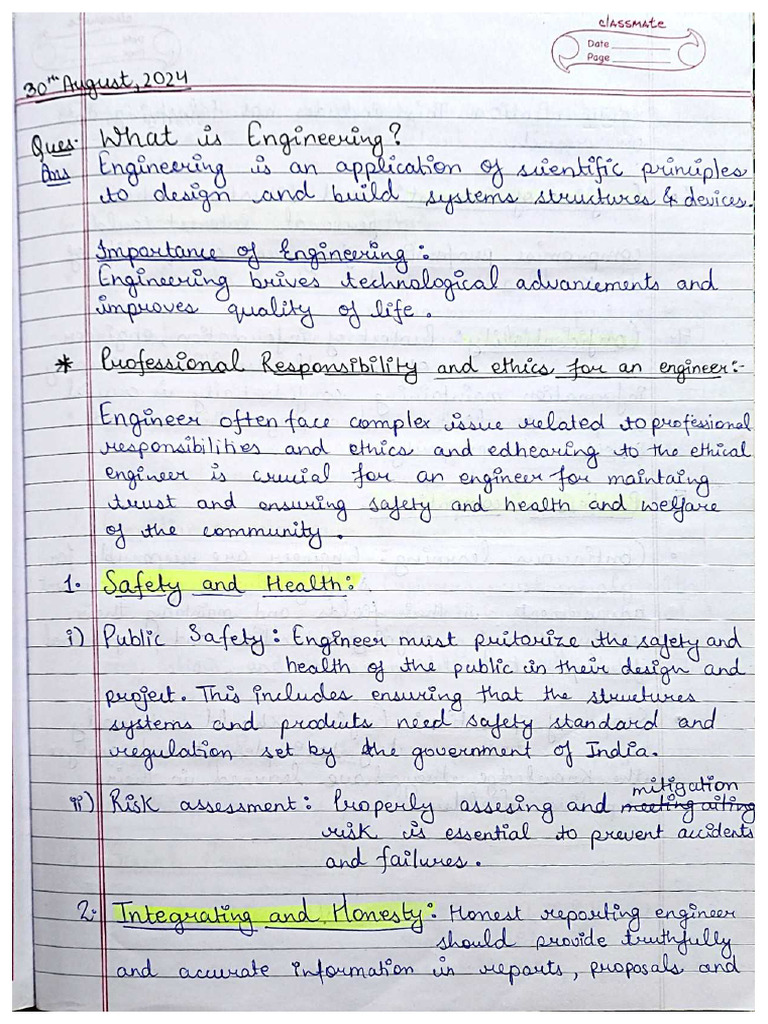 classmate
Date
Page
30th August, 2024
Ques- What is Engineering?
Ans Engineering is an application of scientific principles
to design and build systems structures & devices.
Importance of Engineering:
Engineering brives technological advancements and
improves quality of life.
* Professional Responsibility and ethics for an engineer:-
Engineer often face complex issue related to professional
responsibilities and ethics and edhearing to the ethical
engineer is crucial for an engineer for maintaing
trust and ensuring safety and health and welfare
of the community.
1. Safety and Health:
i) Public Safety: Engineer must pritorize the safety and
health of the public in their design and
project. This includes ensuring that the structures
systems and products need safety standard and
regulation set by the government of India.
mitigation
ii) Risk assessment: Properly assesing and
risk is essential to prevent accidents
and failures.
2. Integrating and Honesty: Honest reporting engineer
should provide truthfully
and accurate information in reports, proposals and